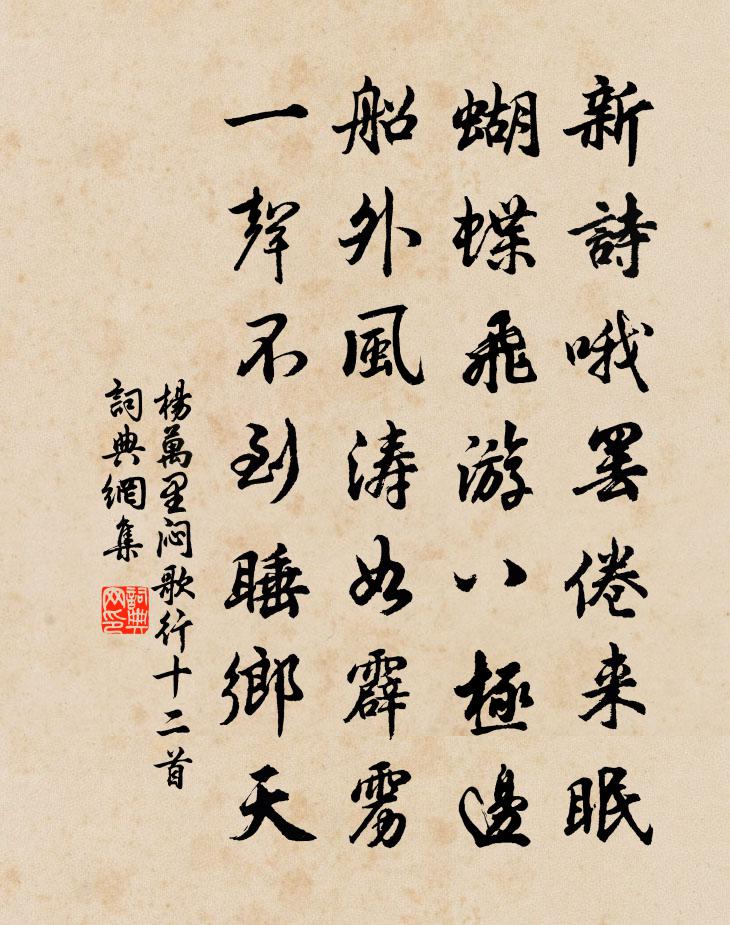 新詩哦罷倦来眠
蝴蝶飛游八極邊
船外風涛如霹雳
一聲不到睡鄉天
楊萬里闷歌行十二首
詞典網集
詞典
网印